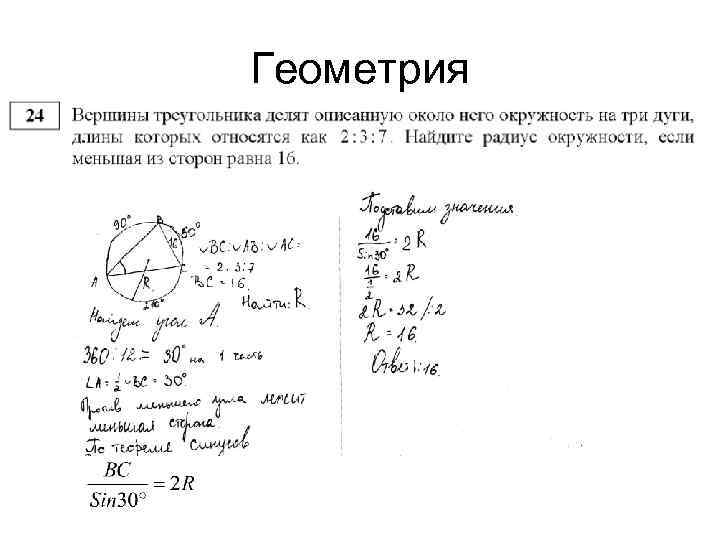 Геометрия
24
Вершины треугольника делят описанную около него окружность на три дуги,
длины которых относятся как 2:3:7. Найдите радиус окружности, если
меньшая из сторон равна 16.
90°
B
60°
16
A
C
R
210°
◡BC:◡AB:◡AC=
= 2:3:7
BC=16.
Найти: R
Найдем угол A.
360:12= 30° на 1 часть
∠A=½ ◡BC=30°
Против меньшего угла лежит
меньшая сторона
По теореме синусов
BC/Sin30° = 2R
Подставим значения
16/Sin30° = 2R
16/½ = 2R
2R=32 /:2
R=16.
Ответ:16.